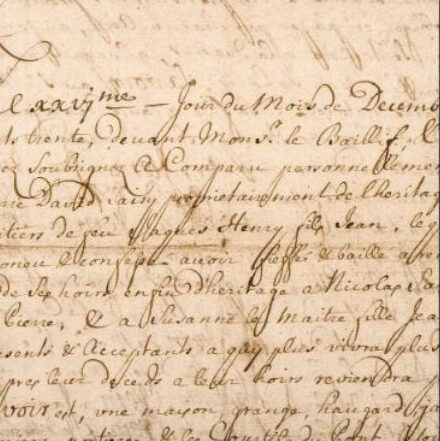 L xxvj me — Jour du Mois de Decemb
ts trente, devant Monsr. le Baillif,
Soubsignez A Comparu personnellemen
David proprietairement de lheritag
itiers de feu Jaques Henry fils Jean, leq
oneu & confessé avoir fieffé & baillé a re
de ses hoirs enfin dheritage a Nicolas
Biene, & a Susanne le Maitre fille Jea
esents & Acceptants a quy plus vivra plus
pres leur deceds a leur hoirs reviendra
avoir est, une maison, grange, haugard, ja
& les